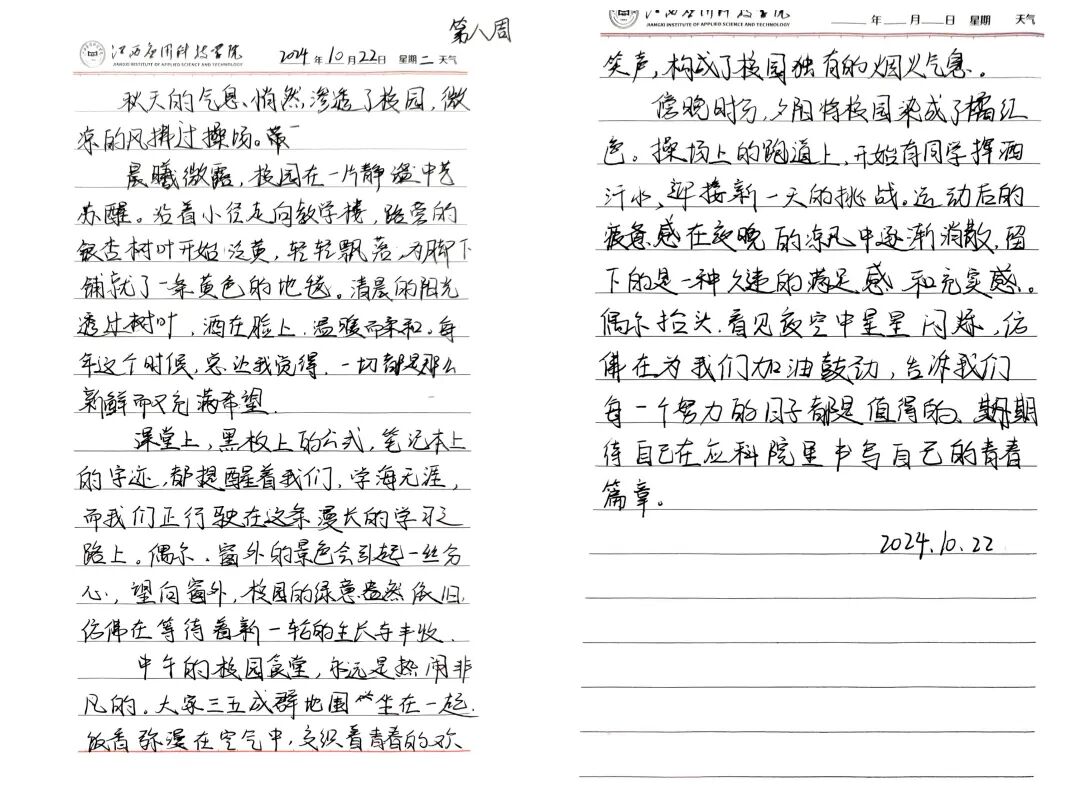 第八周
江西应用科技学院
JIANGXI INSTITUTE OF APPLIED SCIENCE AND TECHNOLOGY
2024年10月22日 星期二 天气
秋天的气息、悄然渗透了校园，微
凉的风拂过操场。
晨曦微露，校园在一片静谧中
苏醒。沿着小径走向教学楼，路旁的
银杏树叶开始泛黄，轻轻飘落，为脚下
铺就了一条黄色的地毯。清晨的阳光
透过树叶，洒在脸上，温暖而柔和。每
年这个时候，总让我觉得，一切都是那么
新鲜而又充满希望.
课堂上，黑板上的公式，笔记本上
的字迹，都提醒着我们，学海无涯，
而我们正行驶在这条漫长的学习之
路上。偶尔、窗外的景色会引起一丝分
心，望向窗外，校园的绿意盎然依旧,
仿佛在等待着新一轮的生长与丰收.
中午的校园食堂，永远是热闹非
凡的。大家三五成群地围坐在一起.
饭香弥漫在空气中，交织着青春的欢
江西应用科技学院
JIANGXI INSTITUTE OF APPLIED SCIENCE AND TECHNOLOGY
年 月 日 星期 天气
笑声，构成了校园独有的烟火气息。
傍晚时分，夕阳将校园染成了橘红
色。操场上的跑道上，开始有同学挥洒
汗水，迎接新一天的挑战。运动后的
疲惫感在夜晚的凉风中逐渐消散，留
下的是一种久违的满足感和充实感。
偶尔抬头，看见夜空中星星闪烁，仿
佛在为我们加油鼓劲，告诉我们
每一个努力的日子都是值得的、期
待自己在应科院里书写自己的青春
篇章。
2024.10.22